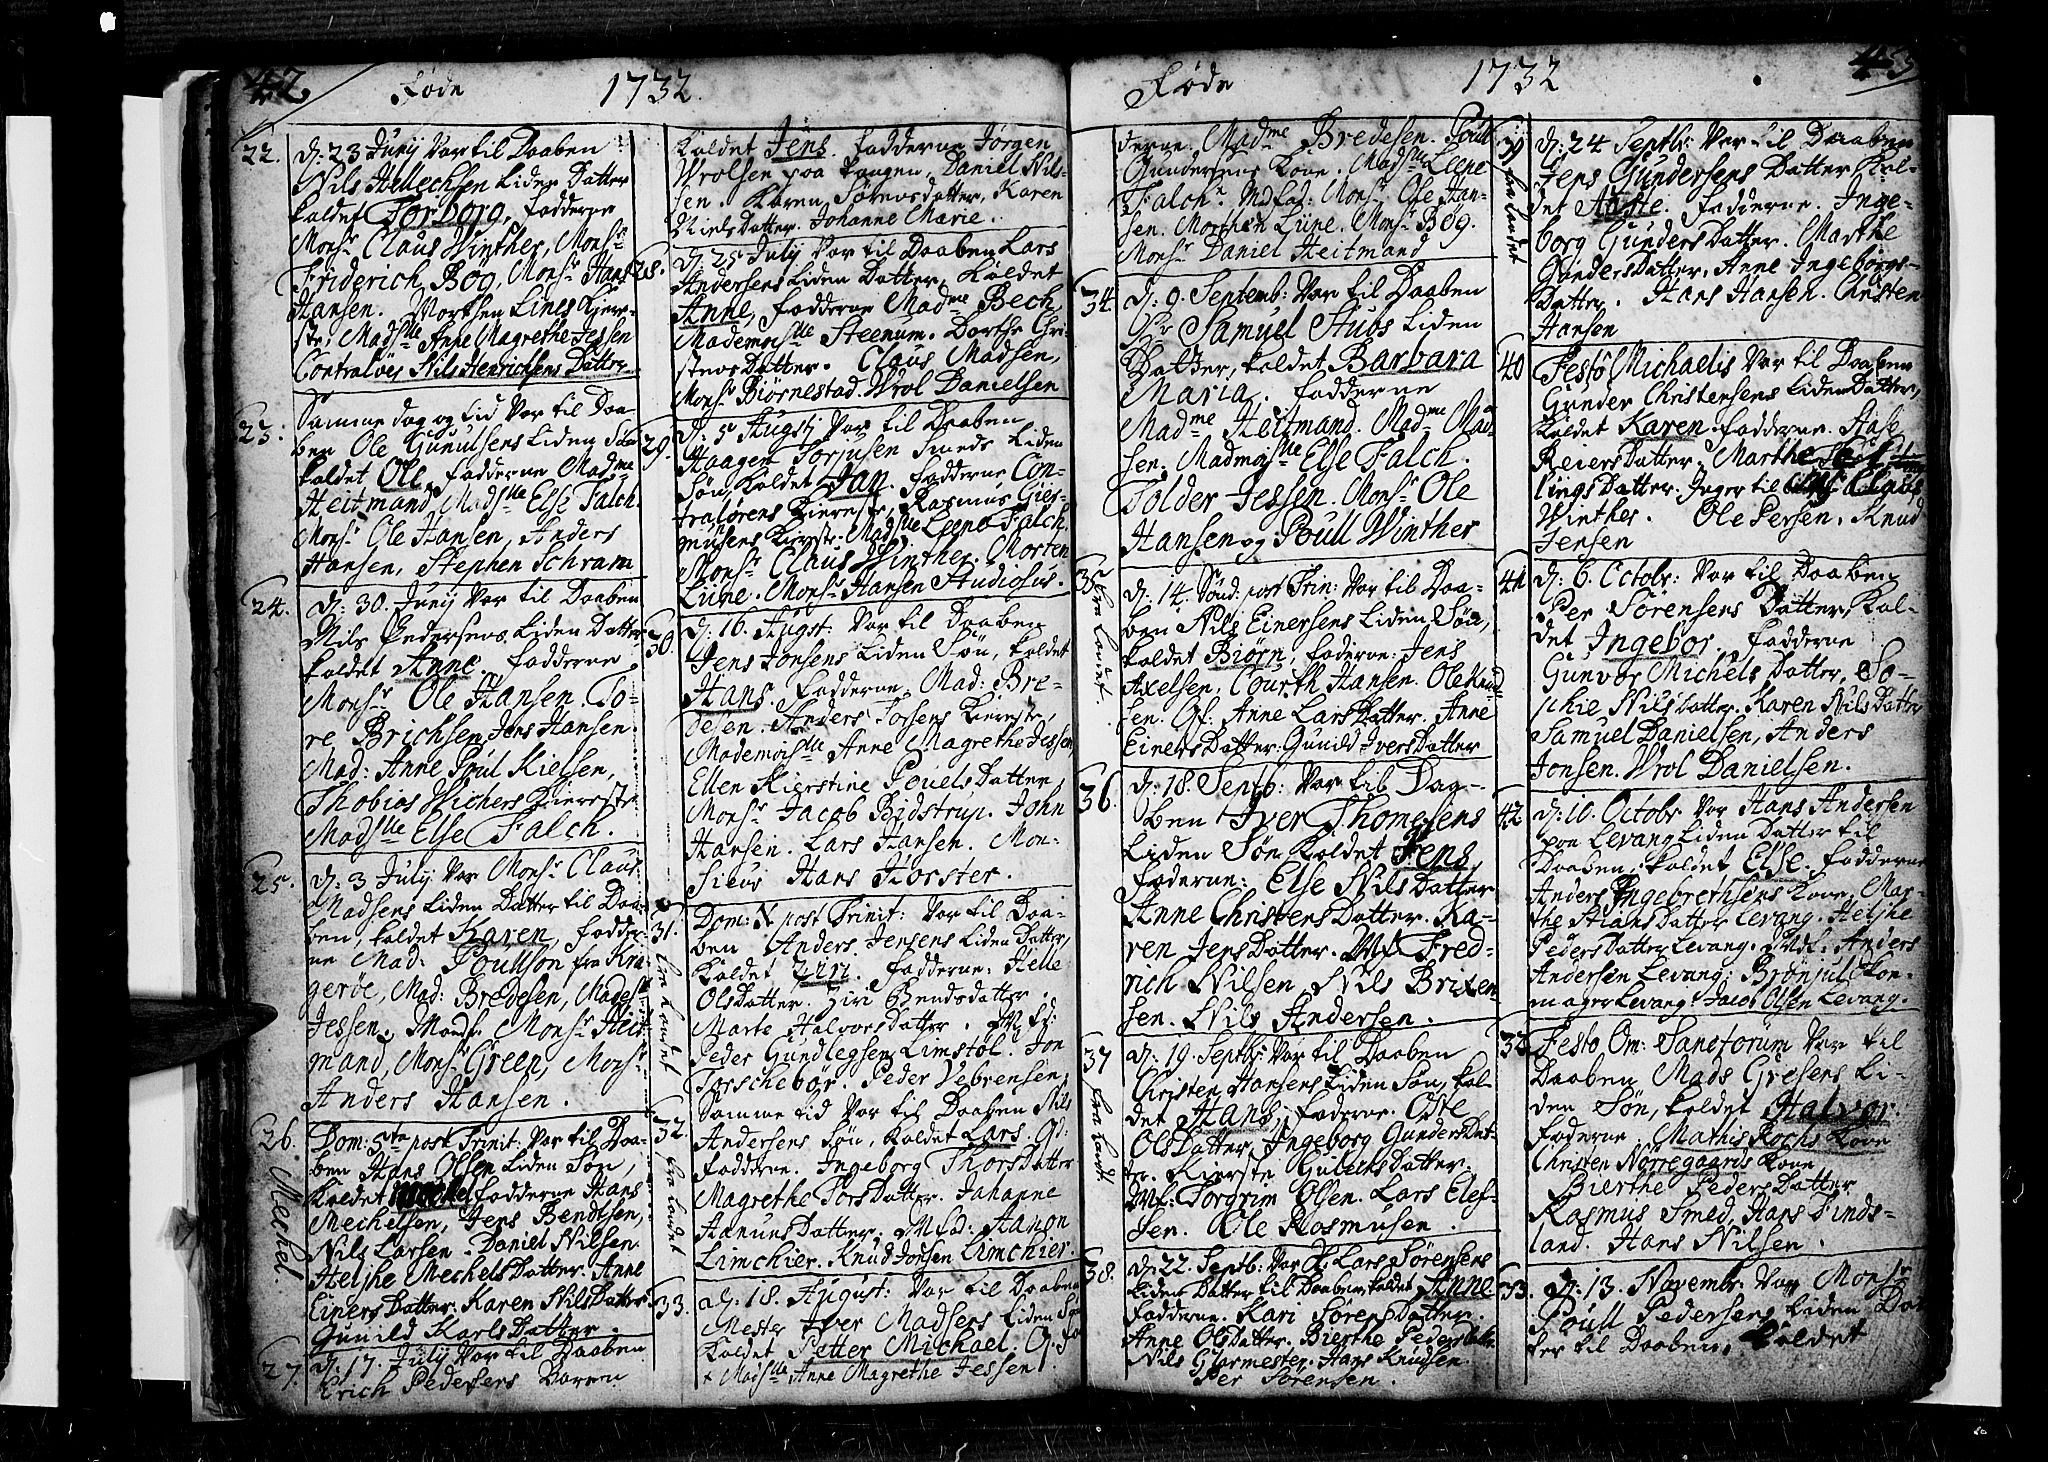 42
Føde 1732
22.
d: 23 Junij Var til Daaben
Nils Hellechsen Liden Datter
kaldet Torborg, fadderne
Monsr Claus Winther, Monsr
Friderich Bøg, Monsr Hans
Hansen. Morthen Lines Kiere-
ste, Madslle Anne Magrethe Jessen
Contraløer Nils Henrichsens Datter
23.
Samme dag og tid Var til Daa-
ben Ole Gunulfsens Liden Søn
kaldet Ole, fadderne Madme
Heitmand, Madslle Else Falch.
Monsr Ole Hansen, Anders
Hansen, Stephen Schram
24.
d: 30. Junij Var til Daaben
Nils Pedersens Liden Datter
kaldet Anne. fadderne
Monsr Ole Hansen. To-
re Brichsen, Jens Hansen.
Mad: Anne Poul Kielsen,
Thobias Wichers Kiereste
Madslle Else Falch.
25.
d: 3 July Var Monsr Claus
Madsens Liden Datter til Daa-
ben, kaldet Karen, fadder-
ne Mad: Poulson fra Kra
gerøe, Mad: Bredesen, Madslle
Jessen, Monsr Heit
mand, Monsr Green, Monsr
Anders Hansen.
26.
Mechel.
Dom: 5ta post Trinit: Var til Daa-
ben Hans Olsen Liden Søn,
kaldet fadderne Hans
Mechelsen, Jens Bendtsen,
Nils Larsen. Daniel Nilsen
Heljhe Mechels Datter. Anne
Einers Datter. Karen Nils Datter
Gunild Karls Datter.
27.
d: 17. July Var til Daaben
Erich Pedersens Baren
kaldet Jens. fadderne Jørgen
Wrolsen paa Tangen, Daniel Nil-
sen. Karen Sørensdatter, Karen
Niels Datter. Johanne Marie.
28.
d: 25 July Var til Daaben Lars
Andersens Liden Datter, kaldet
Anne, fadderne Madme Bech
Mademoislle Steenum. Dorthe Chri-
stens Datter. Claus Madsen,
Monsr Biørnestad. Wrol Danielsen
29.
d: 5 Augstj Var til Daaben
Haagen Torjusen Smeds Liden
Søn, kaldet Jan. fadderne Con-
tralørens Kiereste, Rasmus
musens Kierste. Madslle Leene Falch.
Monsr Claus Winther. Morten
Lüne. Monsr Hansen Studiosus.
30.
d: 16. Augst: Var til Daaben
Jens Jonsens Liden Søn, kaldet
Hans. fadderne, Mad: Bre-
desen. Anders Torsens Kiereste,
Mademoislle Anne Magrethe Jessen,
Ellen Kierstine Pouels Datter
Monsr Jacob Bidstrup. John
Hansen. Lars Hansen. Mon-
sieus Hans Horster.
31. fra Landet
Dom: X post Trinit: Var til Daa-
ben Anders Jensens Liden Datter,
kaldet Ziri. fadderne: Helle
Ols Datter. Ziri Bendsdatter.
Marte Halvors Datter. Mf:
Peder Gundlegsen Limstøl. Jon
Torschebør. Peder Vebrensen,
32. fra Landet
Samme tid Var til Daaben Nils
Andersens Søn, kaldet Lars. Qf:
fadderne. Ingeborg Thors Datter
Magrethe Tors Datter. Johanne
Aanuns Datter, Mfad: Aanon
Limchier. Knud Jonsen Limchier.
33.
d: 18. August: Var til Daaben
Mester Iver Madsens Liden Søn
kaldet Petter Michael. Q. fa
+ Madslle Anne Magrethe Jessen
43
Føde 1732
derne. Madme Bredesen. Poull
Gundersens Kone. Madslle Leene
Falch. Mdfad: Monsr Ole Han-
sen. Morthen Lüne. Monsr Bøg.
Monsr Daniel Heitmand
34.
d: 9. Septemb: Var til Daaben
Hr Samuel Stubs Liden
Datter, kaldet Barbara
Maria. fadderne
Madme Heitmand. Madme Mad-
sen. Madmoislle Else Falch.
Tolder Jessen. Monsr Ole
Hansen og Poull Winther
35. fra Landet.
d: 14. Sønd: post Trin: Var til Daa-
ben Nils Einersens Liden Søn,
kaldet Biørn, faderne: Jens
Axelsen, Courth Hansen. Ole Knud-
sen. Qf: Anne Lars Datter. Anne
Einers Datter: Gunild Ivers Datter
36.
d: 18. Septb: Var til Daa-
ben Iver Thomesens
Liden Søn kaldet Jens,
faderne: Else Nils Datter
Anne Christens Datter. Ka-
ren Jens Datter. Mf Fred-
rich Nilsen, Nils Brixen-
sen. Nils Andersen.
37 fra Landt
d: 19. Septb: Var til Daaben
Christen Hansens Liden Søn, kal-
det Hans, faderne. Oste
Ols Datter, Ingeborg Gunders Dat-
ter. Kierste Gulichs Datter.
Mf: Torgrim Olsen. Lars Elef-
sen. Ole Rosmusen.
38.
d: 22. Septb: Var Lars Sørensens
Liden Datter til Daaben, kaldet Anne
fadderne. Kari Sørens Datter
Anne Ols Datter. Bierthe Peders Datter
Nils Glarmester. Hans Knudsen.
Per Sørensen.
39 fra Landet
d: 24 Septb: Var til Daaben
Jens Gundersens Datter kal-
det Aaste. fadderne. Inge-
borg Gunders Datter. Marthe
Gunders Datter, Anne Ingeborgs-
Datter. Hans Hansen. Christen
Hansen
40
Festô Michaelis Var til Daaben
Gunder Christensens Liden Datter,
kaldet Karen. fadderne. Aase
Reiers Datter. Marthe
lings Datter. Inger til Claus
Winther. Ole Persen. Knud
Jensen
41
d: 6. Octobr: Var til Daaben
Per Sørensens Datter, kal-
det Ingebor. fadderne
Gunvor Michels Datter, So-
phie Nils Datter. Karen Nils Datter
Samuel Danielsen, Anders
Jonsen. Wrol Danielsen.
42
d: 10. Octobr. Var Hans Andersen
paa Levang Liden Datter til
Daaben, kaldet Else. fadderne
Anders Ingebrethsens Kone, Mar-
the Hans Datter Levang. Heljhe
Peders Datter Levang. Mf: Anders
Andersen Levang: Brønjul Skon-
mager Levang: Jacob Olsen Levang.
33
Festo Om: Sanctorum Var til
Daaben Mads Gresens Li-
den Søn, kaldet Halvor.
faderne. Mathis Kochs Kone
Christen Nørregaards Kone
Bierthe Peders Datter
Rasmus Smed, Hans Finds-
land. Hans Nilsen.
33.
d: 13. Novembr: Var Monsr
Poull Pedersens Liden Dat
ter til Daaben, kaldet